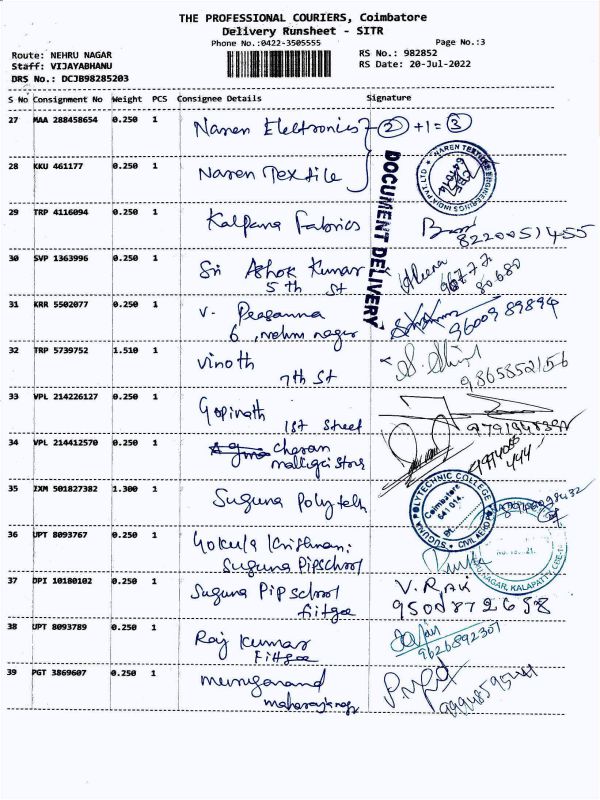 THE PROFESSIONAL COURIERS, Coimbatore
Delivery Runsheet - SITR
Phone No.:0422-3505555
Page No.:3
Route: NEHRU NAGAR
RS No.: 982852
Staff: VIJAYABHANU
RS Date: 20-Jul-2022
DRS No.: DCJB98285203
S No Consignment No Weight PCS Consignee Details Signature
27 MAA 288458654 0.250 1 Naren Electronics 2 +1= 3
28 KKU 461177 0.250 1 Naren Textile
DOCUMENT DELIVERY
29 TRP 4116094 0.250 1 Kalpana Fabrics
8220051455
30 SVP 1363996 0.250 1 Sri Ashok Kumar
5th St 80680
31 KRR 5502077 0.250 1 V. Prasanna
6, nehru nagar 9600989894
32 TRP 5739752 1.510 1 Vinoth
7th St 9865852156
33 VPL 214226127 0.250 1 Gopinath
1st Street
34 VPL 214412570 0.250 1 Charan
malligai store
35 IXM 501827382 1.300 1 Suguna Polytech
SUGUNA POLYTECHNIC COLLEGE
Coimbatore
641 014.
36 UPT 8093767 0.250 1 Gokula Krishnan.
Suguna Pipschool
NAGAR, KALAPATTY
37 DPI 10180102 0.250 1 Suguna Pip school V. RAK
fiitjee 9500872658
38 UPT 8093789 0.250 1 Raj Kumar
Fiitjee 9626892307
39 PGT 3869607 0.250 1 Muruganand